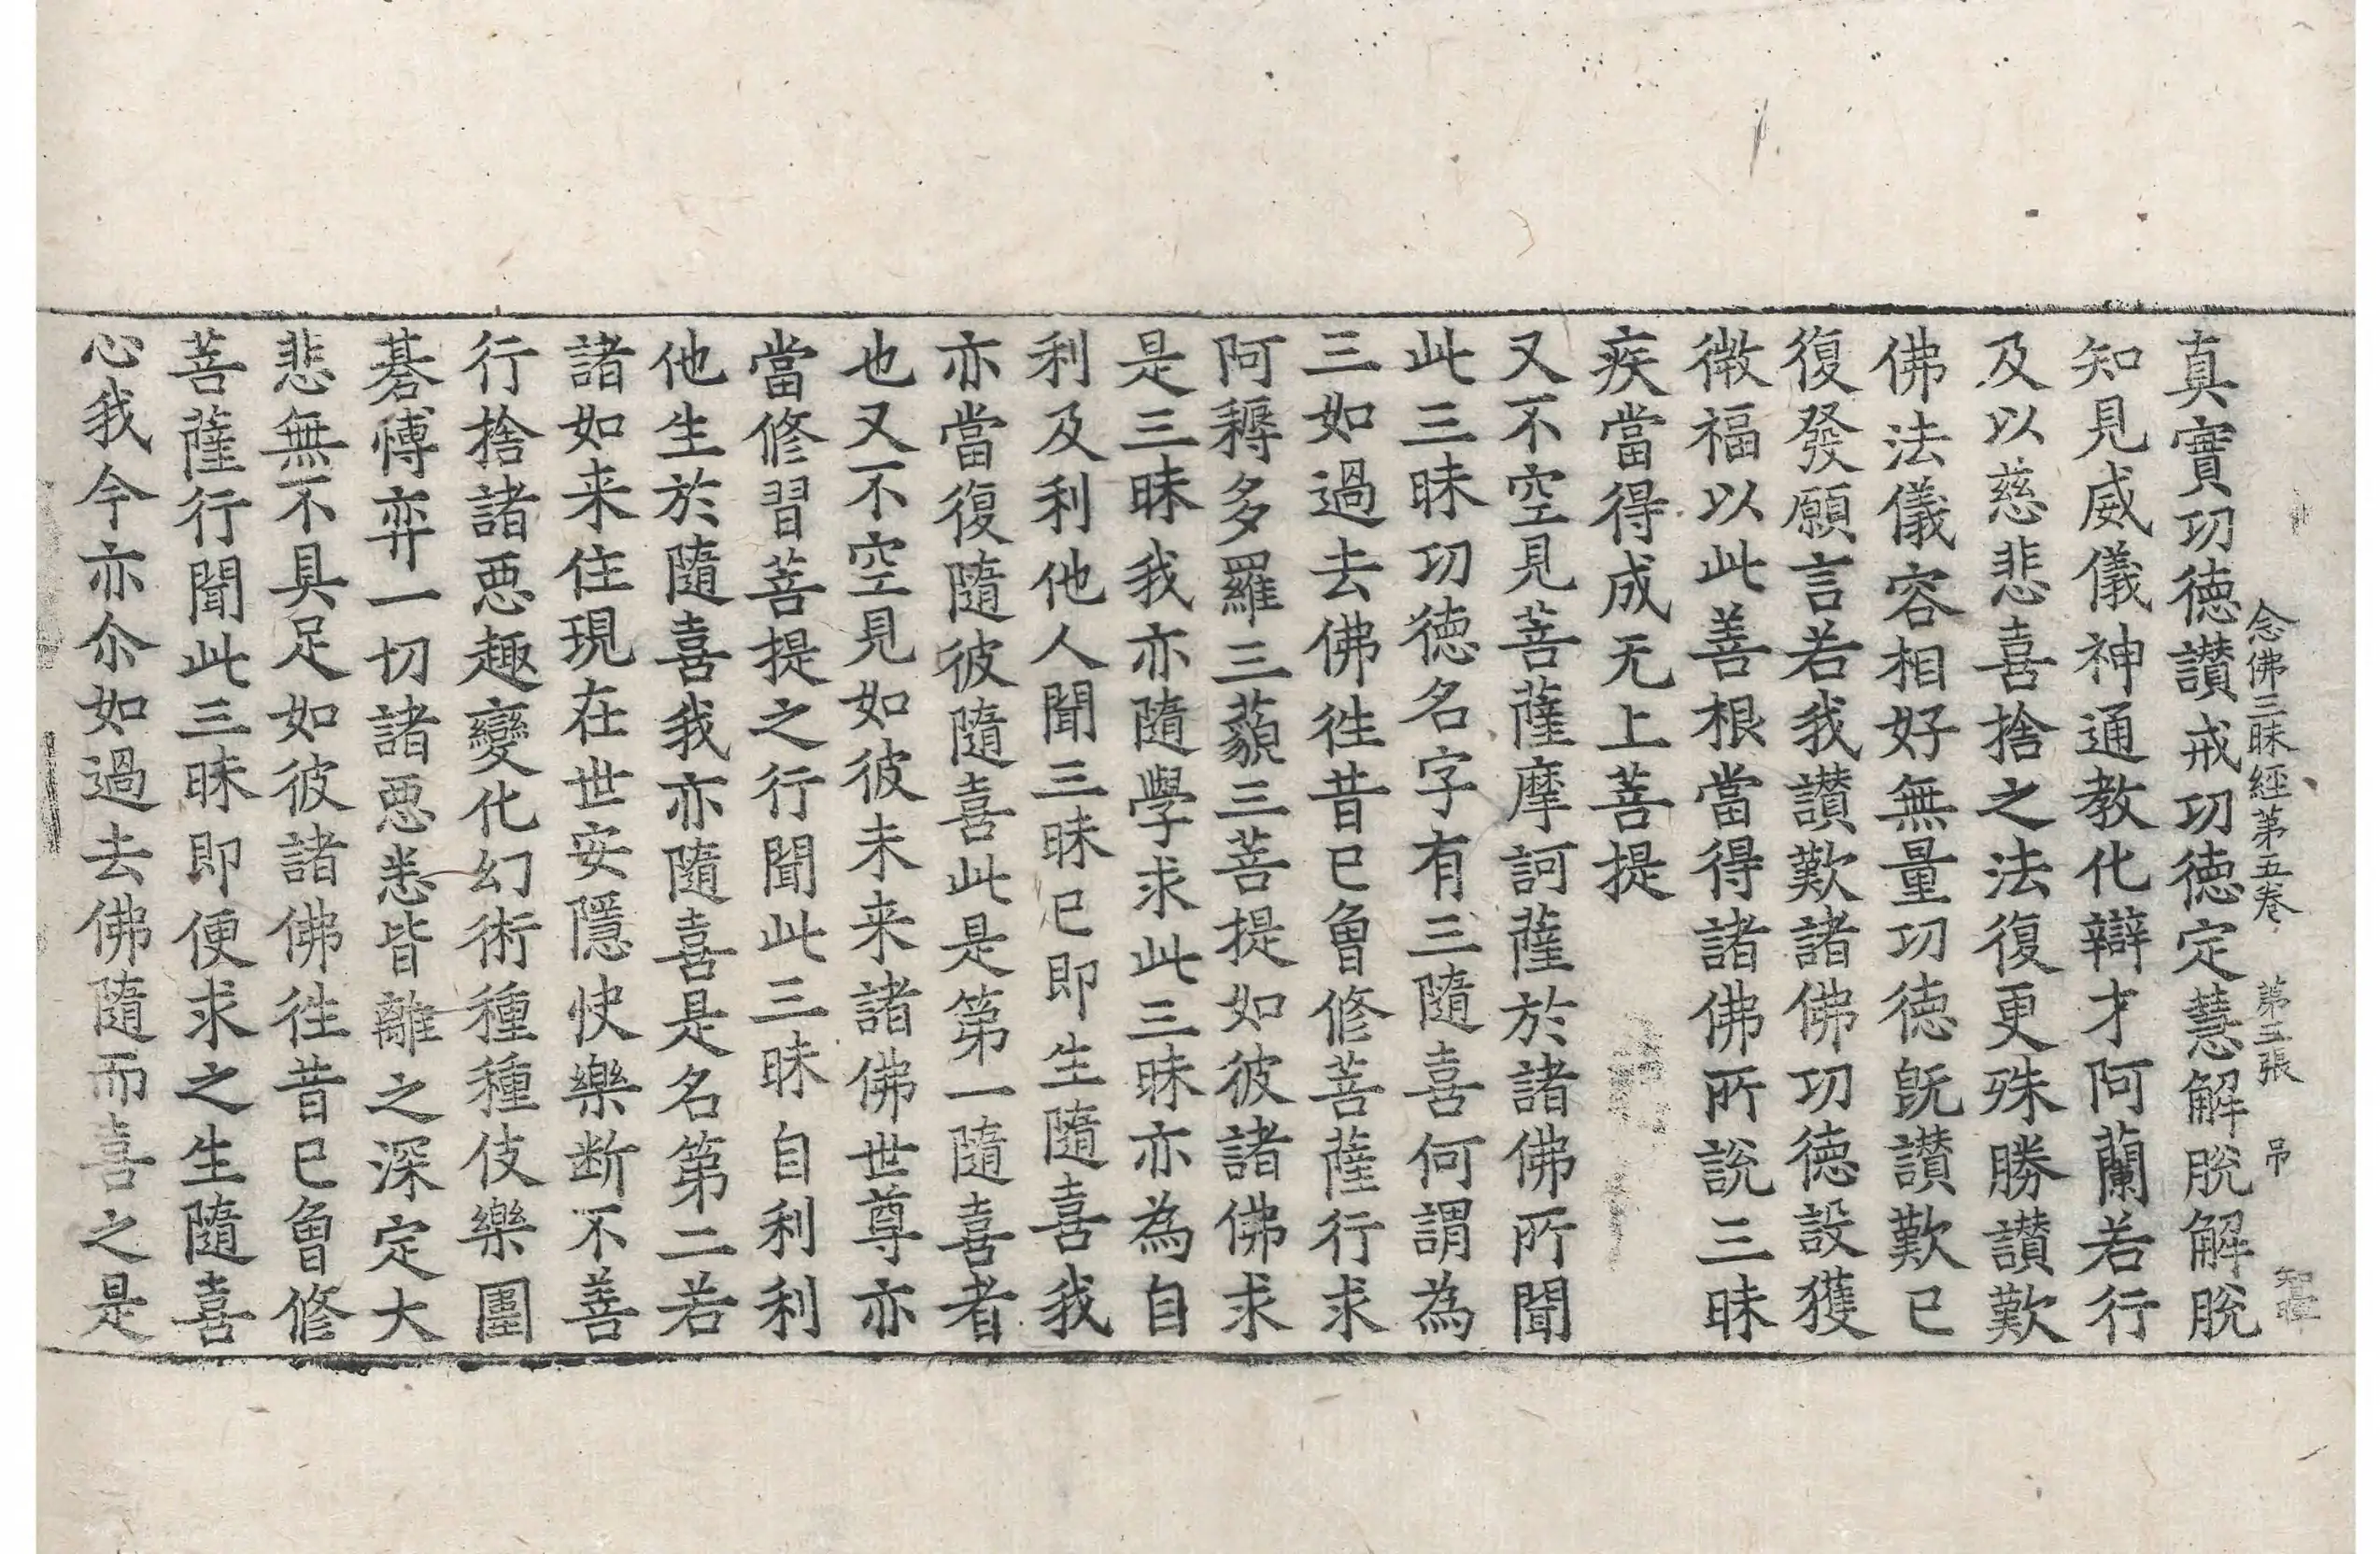 念佛三昧經第五卷 第三張 吊
真實功德讃戒功德定慧解脫解脫
知見威儀神通教化辯才阿蘭若行
及以慈悲喜捨之法復更殊勝讃歎
佛法儀容相好無量功德旣讃歎已
復發願言若我讃歎諸佛功德設獲
微福以此善根當得諸佛所說三昧
疾當得成无上菩提
又不空見菩薩摩訶薩於諸佛所聞
此三昧功德名字有三隨喜何謂為
三如過去佛徃昔已曾修菩薩行求
阿耨多羅三藐三菩提如彼諸佛求
是三昧我亦隨學求此三昧亦為自
利及利他人聞三昧已即生隨喜我
亦當復隨彼隨喜此是第一隨喜者
也又不空見如彼未来諸佛世尊亦
當修習菩提之行聞此三昧自利利
他生於隨喜我亦隨喜是名第二若
諸如来住現在世安隱快樂断不善
行捨諸惡趣變化幻術種種伎樂圍
碁愽弈一切諸惡悉皆離之深定大
悲無不具足如彼諸佛徃昔已曾修
菩薩行聞此三昧即便求之生隨喜
心我今亦尒如過去佛隨而喜之是